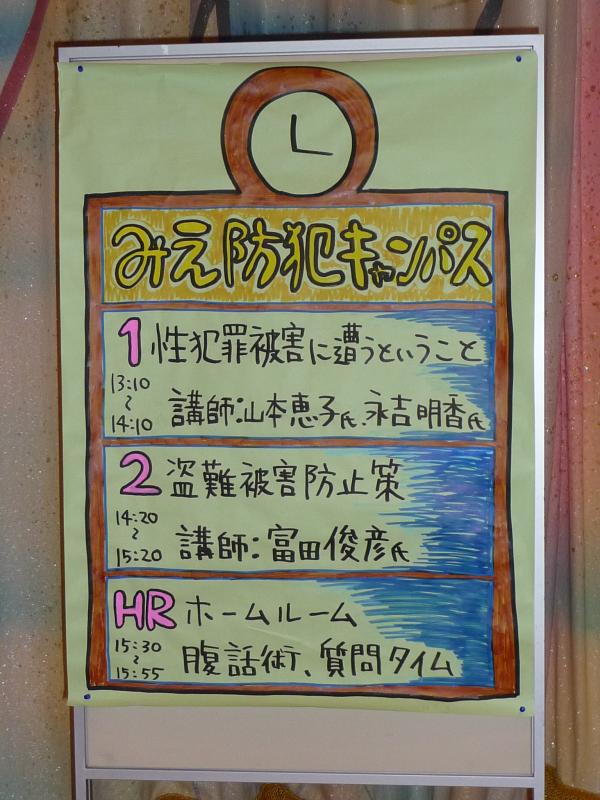 みえ防犯キャンパス
1 性犯罪被害に遭うということ
13:10
~
14:10
講師:山本恵子氏、永吉明香氏
2 盗難被害防止策
14:20
~
15:20
講師:富田俊彦氏
HR ホームルーム
15:30
~
15:55
腹話術、質問タイム